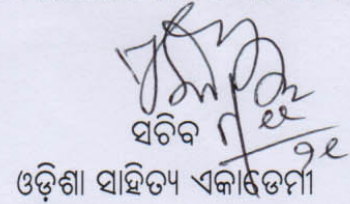 ସଚିବ
ଓଡ଼ିଶା ସାହିତ୍ୟ ଏକାଡେମୀ